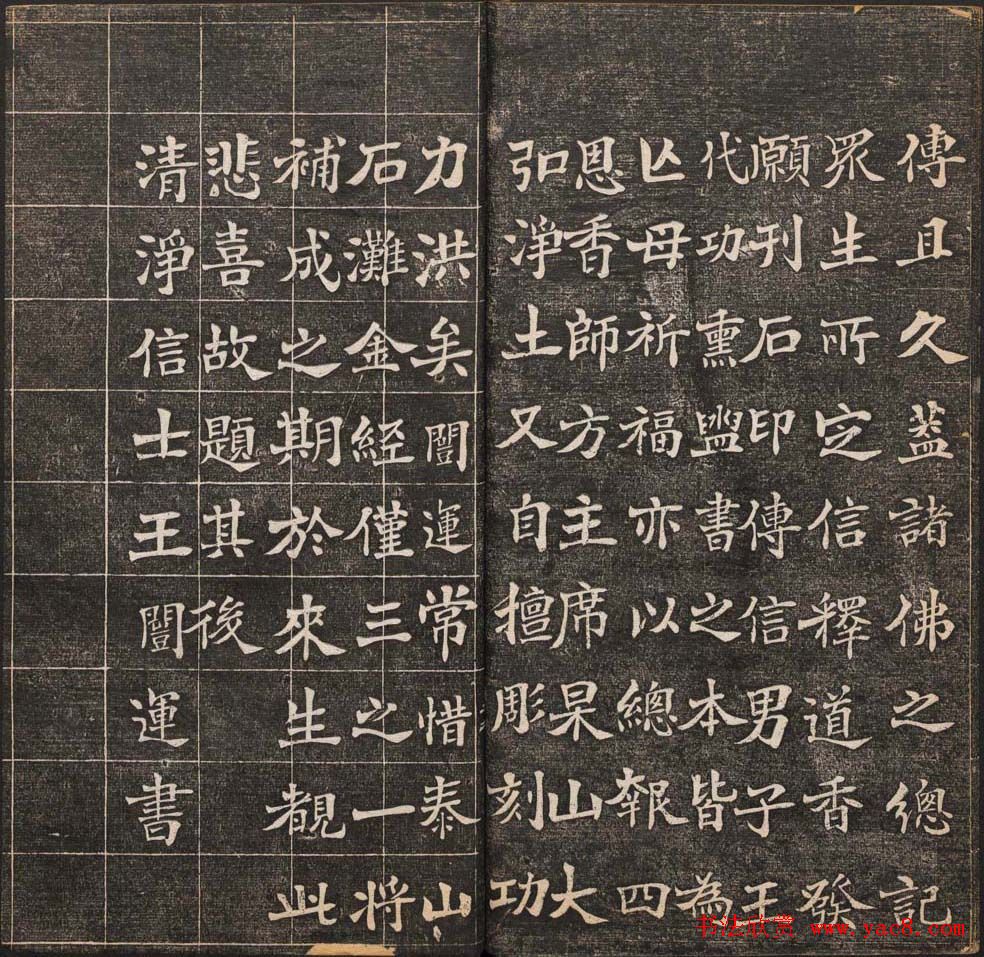 傳且久葢諸佛之總記
眾生所定信釋道香發
願刊石印傳信男子王
代功熏盥書之本皆為
亾母祈福亦以總報四
恩香師方主席杲山大
弘淨土又自擅彫刻功
力洪矣闓運常惜泰山
石灘金經僅三之一將
補成之期於來生覩此
悲喜故題其後
清淨信士王闓運書
书法欣赏 www.yac8.com